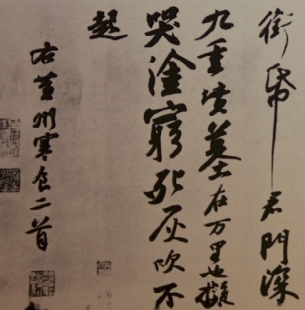 衔帋君門深
九重墳墓在万里也擬
哭塗窮死灰吹不
起
右黃州寒食二首